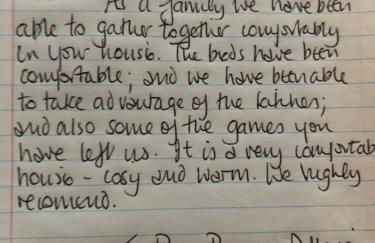 As a family we have been
able to gather together comfortably
in your house. The beds have been
comfortable; and we have been able
to take advantage of the kitchen;
and also some of the games you
have left us. It is a very comfortab
house - cosy and warm. We highly
recomend.